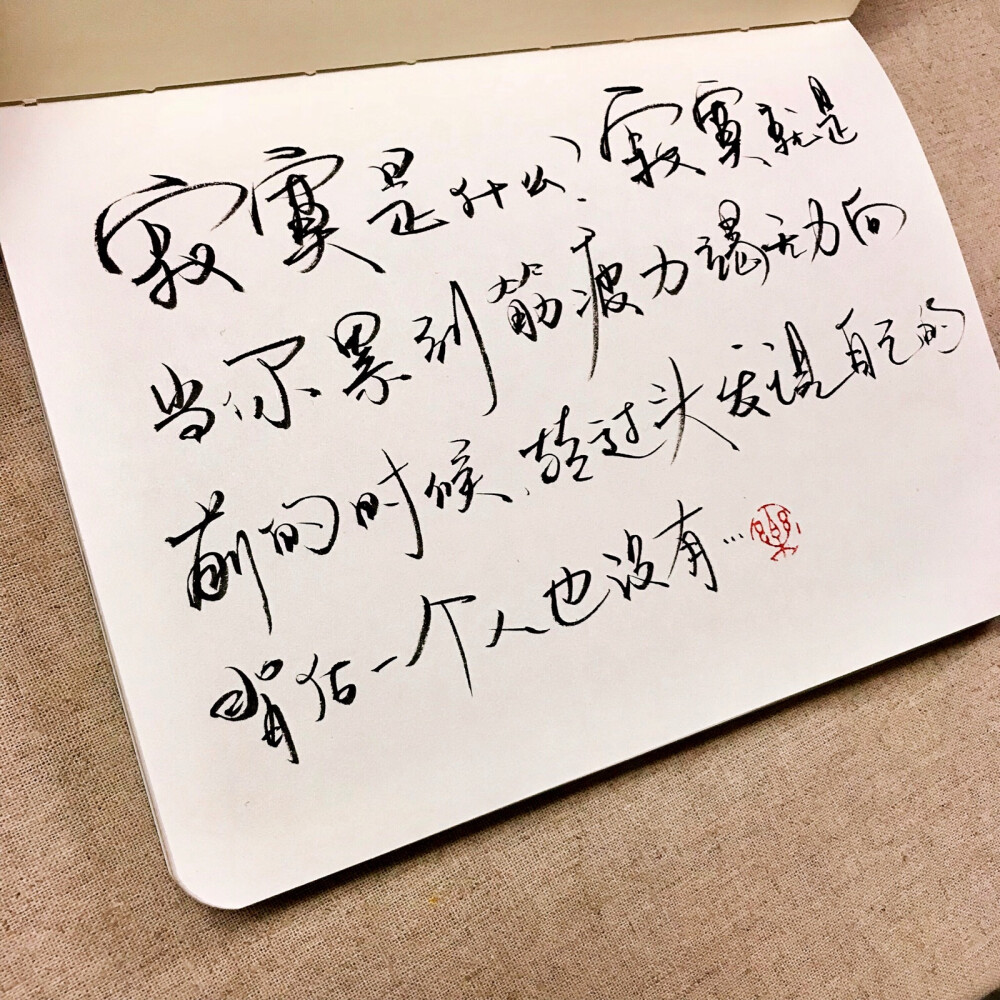 寂寞是什么?寂寞就是
当你累到筋疲力竭无力向
前的时候,转过头发现自己的
背后一个人也没有…